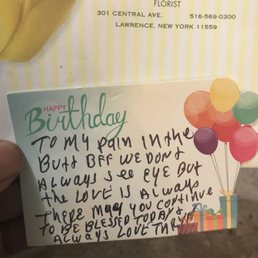 FLORIST
301 CENTRAL AVE. 516-569-0300
LAWRENCE, NEW YORK 11559
HAPPY
Birthday
TO MY PAIN IN the
Butt BFF WE DON'T
Always see EYE But
the LOVE IS Always
There May you CONTINUE
TO BE BLESSED TODAY &
Always LOVE